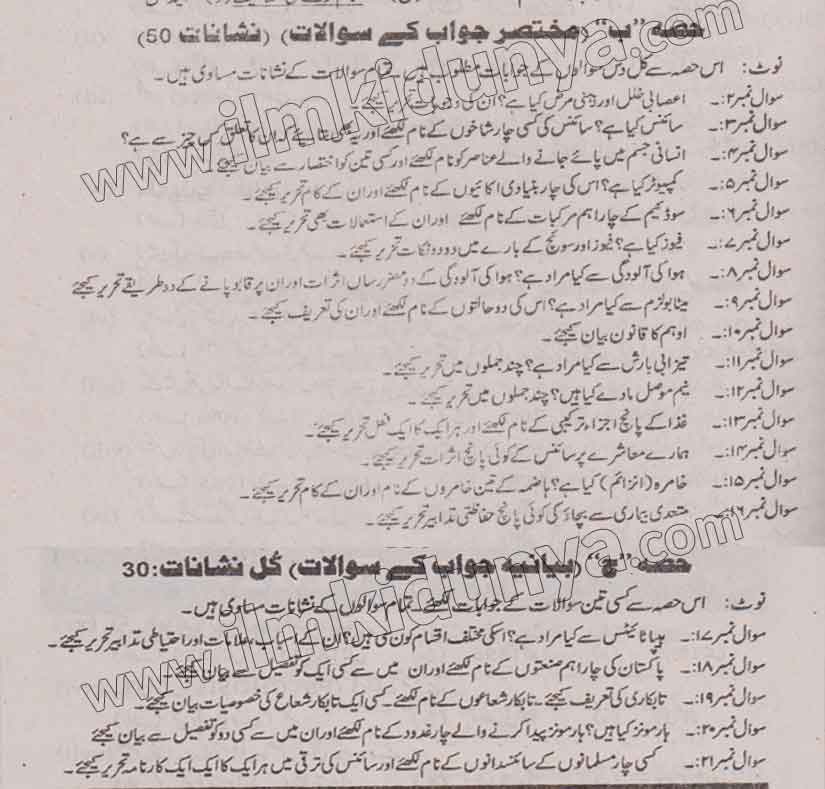 حصہ "ب" (مختصر جواب کے سوالات) (نشانات 50)
نوٹ: اس حصہ سے کل دس سوالوں کے جوابات مطلوب ہیں۔ تمام سوالات کے نشانات مساوی ہیں۔
سوال نمبر۲:۔ اعصابی خلل اور ذہنی مرض کیا ہے؟ ان کی وجوہات تحریر کیجئے۔
سوال نمبر۳:۔ سائنس کیا ہے؟ سائنس کی کسی چار شاخوں کے نام لکھئے اور یہ بھی بتائیے کہ ان کا تعلق کس چیز سے ہے؟
سوال نمبر۴:۔ انسانی جسم میں پائے جانے والے عناصر کو نام لکھئے اور کسی تین کو اختصار سے بیان کیجئے۔
سوال نمبر۵:۔ کمپیوٹر کیا ہے؟ اس کی چار بنیادی اکائیوں کے نام لکھئے اور ان کے کام تحریر کیجئے۔
سوال نمبر۶:۔ سوڈیم کے چار اہم مرکبات کے نام لکھئے اور ان کے استعمالات بھی تحریر کیجئے۔
سوال نمبر۷:۔ فیوز کیا ہے؟ فیوز اور سوئچ کے بارے میں دو دو نکات تحریر کیجئے۔
سوال نمبر۸:۔ ہوا کی آلودگی سے کیا مراد ہے؟ ہوا کی آلودگی کے دو مضر رساں اثرات اور ان پر قابو پانے کے دو طریقے تحریر کیجئے
سوال نمبر۹:۔ میٹابولزم سے کیا مراد ہے؟ اس کی دو حالتوں کے نام لکھئے اور ان کی تعریف کیجئے۔
سوال نمبر۱۰:۔ اوہم کا قانون بیان کیجئے۔
سوال نمبر۱۱:۔ تیزابی بارش سے کیا مراد ہے؟ چند جملوں میں تحریر کیجئے۔
سوال نمبر۱۲:۔ نیم موصل مادے کیا ہیں؟ چند جملوں میں تحریر کیجئے۔
سوال نمبر۱۳:۔ غذا کے پانچ اجزاء ترکیبی کے نام لکھئے اور ہر ایک کا ایک فعل تحریر کیجئے۔
سوال نمبر۱۴:۔ ہمارے معاشرے پر سائنس کے کوئی پانچ اثرات تحریر کیجئے۔
سوال نمبر۱۵:۔ خامرہ (انزائم) کیا ہے؟ ہاضمہ کے تین خامروں کے نام اور ان کے کام تحریر کیجئے۔
سوال نمبر۱۶:۔ متعدی بیماری سے بچاؤ کی کوئی پانچ حفاظتی تدابیر تحریر کیجئے۔
حصہ "ج" (بیانیہ جواب کے سوالات) کُل نشانات: 30
نوٹ: اس حصہ سے کسی تین سوالات کے جوابات لکھئے۔ تمام سوالوں کے نشانات مساوی ہیں۔
سوال نمبر۱۷:۔ ہیپاٹائیٹس سے کیا مراد ہے؟ اسکی مختلف اقسام کون سی ہیں؟ ان کے اسباب، علامات اور احتیاطی تدابیر تحریر کیجئے۔
سوال نمبر۱۸:۔ پاکستان کی چار اہم صنعتوں کے نام لکھئے اور ان میں سے کسی ایک کو تفصیل سے بیان کیجئے۔
سوال نمبر۱۹:۔ تابکاری کی تعریف کیجئے۔ تابکار شعاعوں کے نام لکھئے۔ کسی ایک تابکار شعاع کی خصوصیات بیان کیجئے۔
سوال نمبر۲۰:۔ ہارمونز کیا ہیں؟ ہارمونز پیدا کرنے والے چار غدود کے نام لکھئے اور ان میں سے کسی دو کو تفصیل سے بیان کیجئے
سوال نمبر۲۱:۔ کسی چار مسلمانوں کے سائنسدانوں کے نام لکھئے اور سائنس کی ترقی میں ہر ایک کا ایک ایک کارنامہ تحریر کیجئے۔
www.ilmkidunya.com
www.ilmkidunya.com